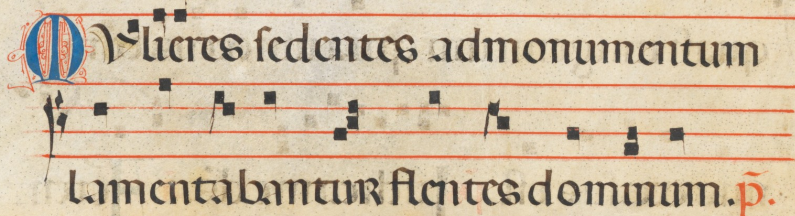 Mulieres sedentes admonumentum
lamentabantur flentes dominum. p̄.